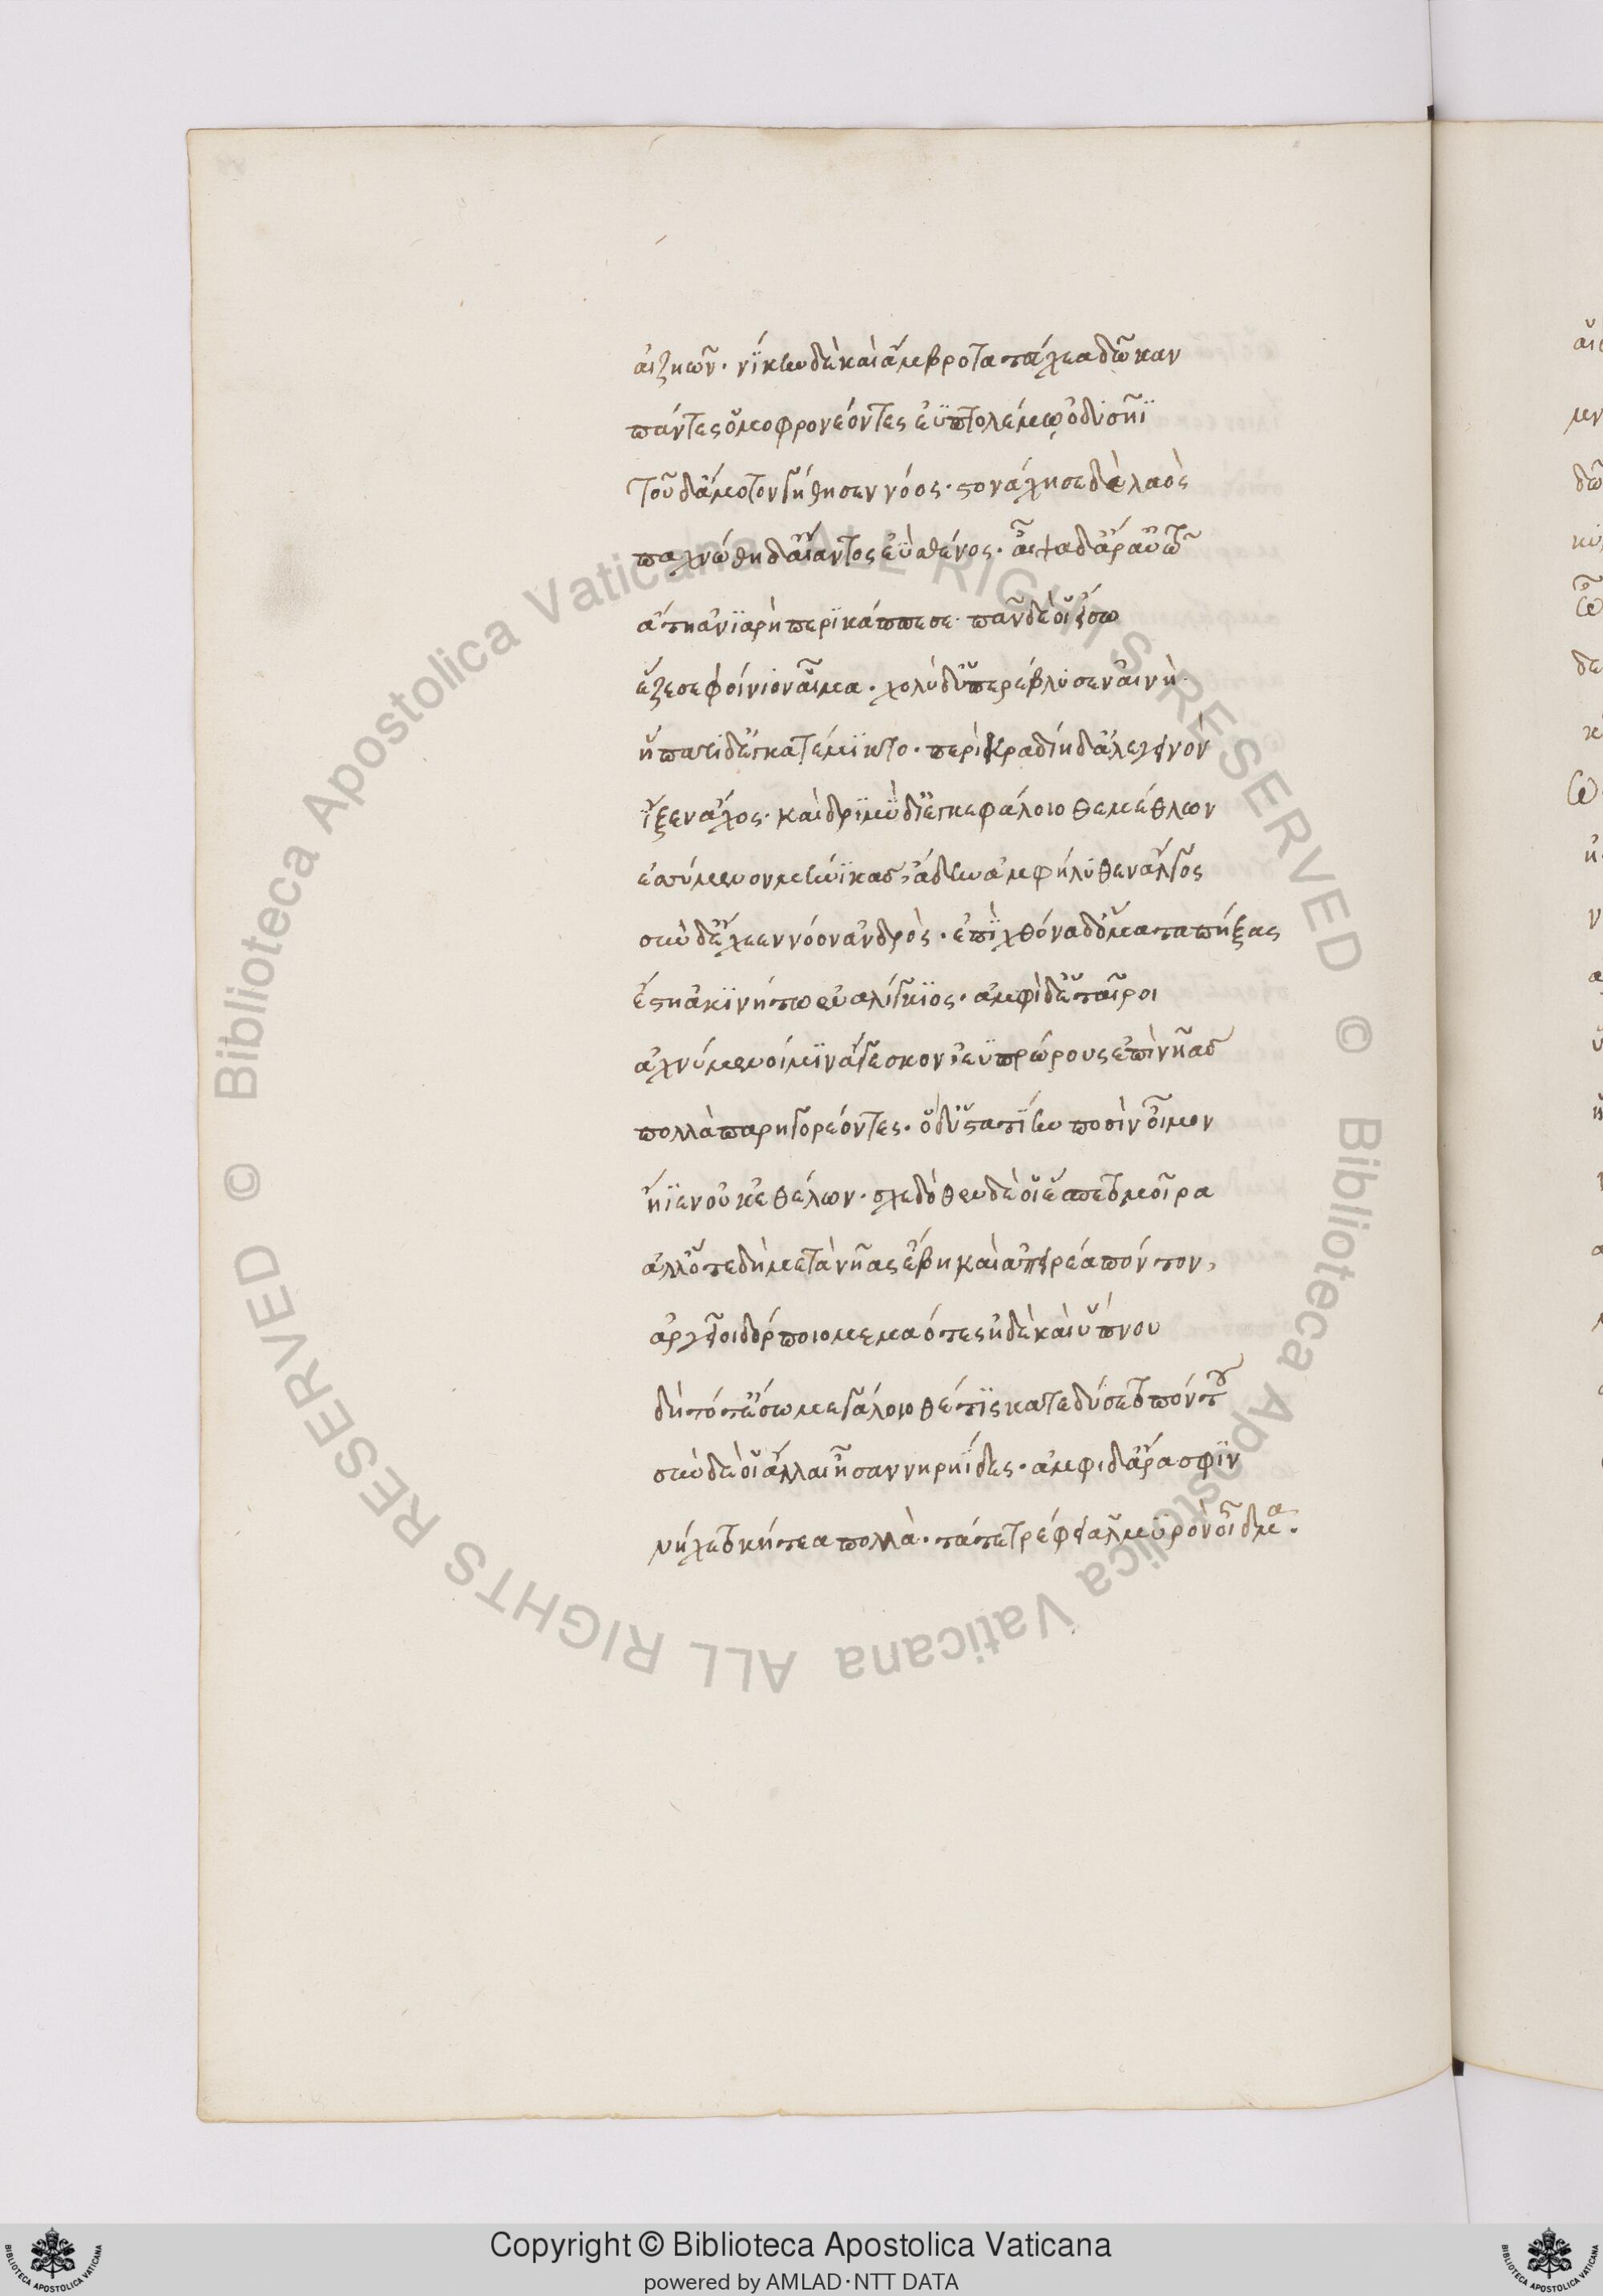 αἰζηῶν· νίκην δὲ καὶ ἄμβροτα τεύχεα δῶκαν
πάντες ὁμοφρονέοντες ἐϋπτολέμῳ ὀδυσῆϊ
τοῦ δ' ἄμοτον γήθησεν νόος· στονάχησε δὲ λαὸς
παχνώθη δ' αἴαντος ἐῢ σθένος· αἶψα δ' ἄρ' αὐτῶ
ἄτη ἀνιαρὴ περικάππεσε· πᾶν δέ οἱ εἴσω
ἔζεσε φοίνιον αἷμα· χολὴ δ' ὑπερέβλυσεν αἰνὴ
ἥπατι δ' ἐγκατέμικτο· περὶ κραδίη δ' ἀλεγεινὸν
ἷξεν ἄχος· καὶ δριμὺ δι' ἐγκεφάλοιο θεμέθλων
ἐσσύμενον μήνιγγας ἄδην ἀμφήλυθεν ἄλγος
σὺν δ' ἔχεεν νόον ἀνδρὸς· ἐπὶ χθόνα δ' ὄμματα πήξας
ἔστη ἀκινήτῳ ἐναλίγκιος· ἀμφὶ δ' ἑταῖροι
ἀχνύμενοί μιν ἄγεσκον ἐϋπρώρους ἐπὶ νῆας
πολλὰ παρηγορέοντες· ὁ δ' ὑστατίην ποσὶν οἶμον
ἤϊεν οὐκ ἐθέλων· σχεδόθεν δέ οἱ ἕσπετο μοῖρα
ἀλλ' ὅτε δὴ μετὰ νῆας ἔβη καὶ ἀπείρεα πόντον,
ἀργεῖοι δόρποιο μεμαότες ἠδὲ καὶ ὕπνου
δὴ τότ' ἔσω μεγάλοιο θέτις κατεδύσετο πόντου
σὺν δέ οἱ ἄλλαι ἦσαν νηρηΐδες· ἀμφὶ δ' ἄρα σφιν
νήχετο κήτεα πολλὰ· τά τε τρέφει ἁλμυρὸν οἶδμα.
Copyright © Biblioteca Apostolica Vaticana
powered by AMLAD·NTT DATA